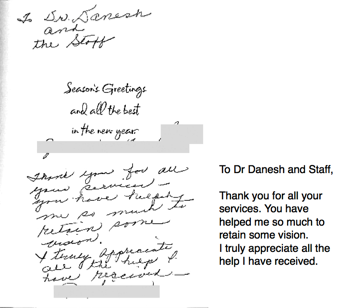 To Dr. Danesh
and
the Staff
Season's Greetings
and all the best
in the new year.
Thank you for all
your services –
you have helped
me so much to
retain some
vision.
I truly appreciate
all the help I
have received –
To Dr Danesh and Staff,
Thank you for all your
services. You have
helped me so much to
retain some vision.
I truly appreciate all the
help I have received.